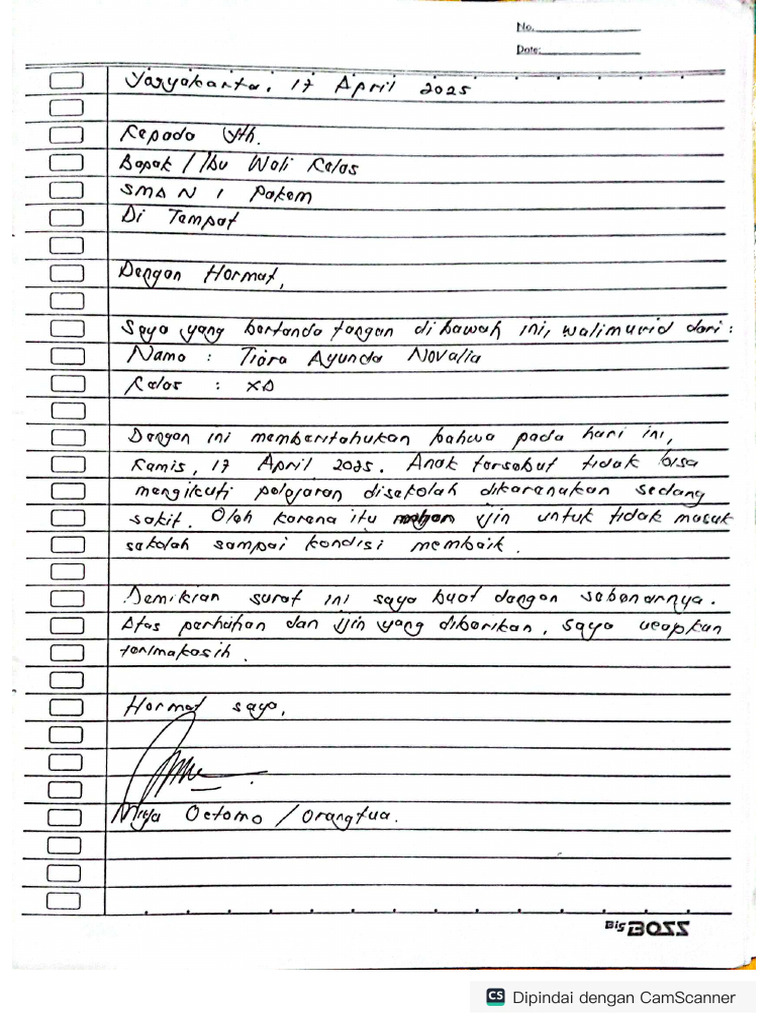 No.
Date:
Yogyakarta, 17 April 2025
Kepada Yth.
Bapak / Ibu Wali Kelas
SMA N 1 Pakem
Di Tempat
Dengan Hormat,
Saya yang bertanda tangan dibawah ini, walimurid dari :
Nama : Tiara Ayunda Novalia
Kelas : XD
Dengan ini memberitahukan bahwa pada hari ini,
Kamis, 17 April 2025. Anak tersebut tidak bisa
mengikuti pelajaran disekolah dikarenakan sedang
sakit. Oleh karena itu mohon ijin untuk tidak masuk
sekolah sampai kondisi membaik.
Demikian surat ini saya buat dengan sebenarnya.
Atas perhatian dan ijin yang diberikan, saya ucapkan
terimakasih.
Hormat saya,
Octomo / Orangtua.
Big BOSS
CS Dipindai dengan CamScanner